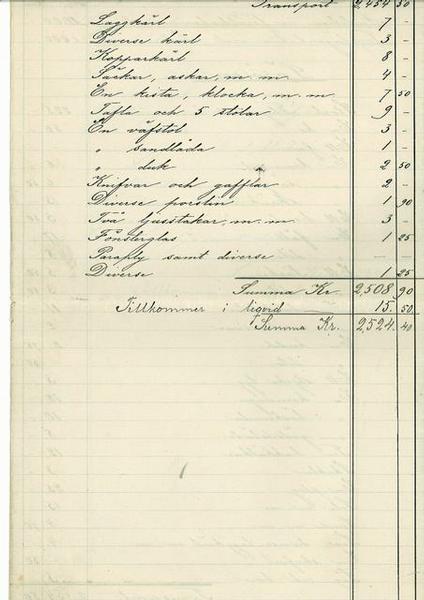 Transport 2,454 50
Laggkärl 7 -
Diverse kärl 3 -
Kopparkärl 8 -
Säckar, askar, m. m. 4 -
En kista, klocka, m. m. 7 50
Tafla och 5 stolar 9 -
En väfstol 3 -
" sandlåda 1 -
" duk 2 50
Knifvar och gafflar 2 -
Diverse porslin 1 90
Två ljusstakar, m. m. 3 -
Fönsterglas 1 25
Paraply samt diverse - -
Diverse 1 25
Summa Kr. 2,508 90
Tillkommer i liqvid 15 50
Summa Kr. 2,524 40